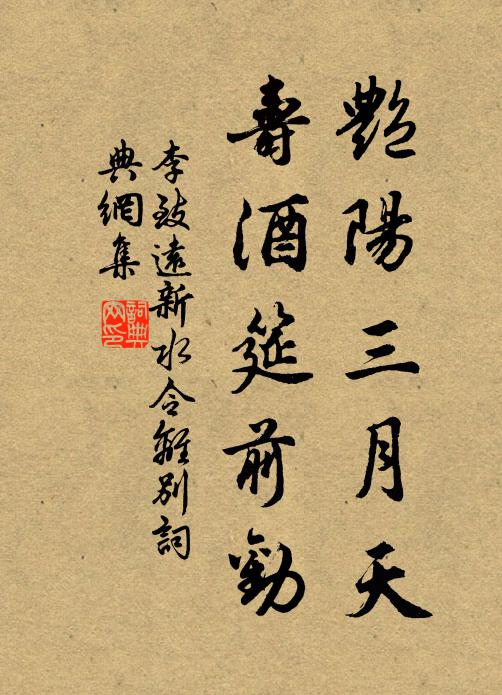 艷陽三月天
壽酒筵前勸
李致遠新水令離別詞
典網集
詞典網印